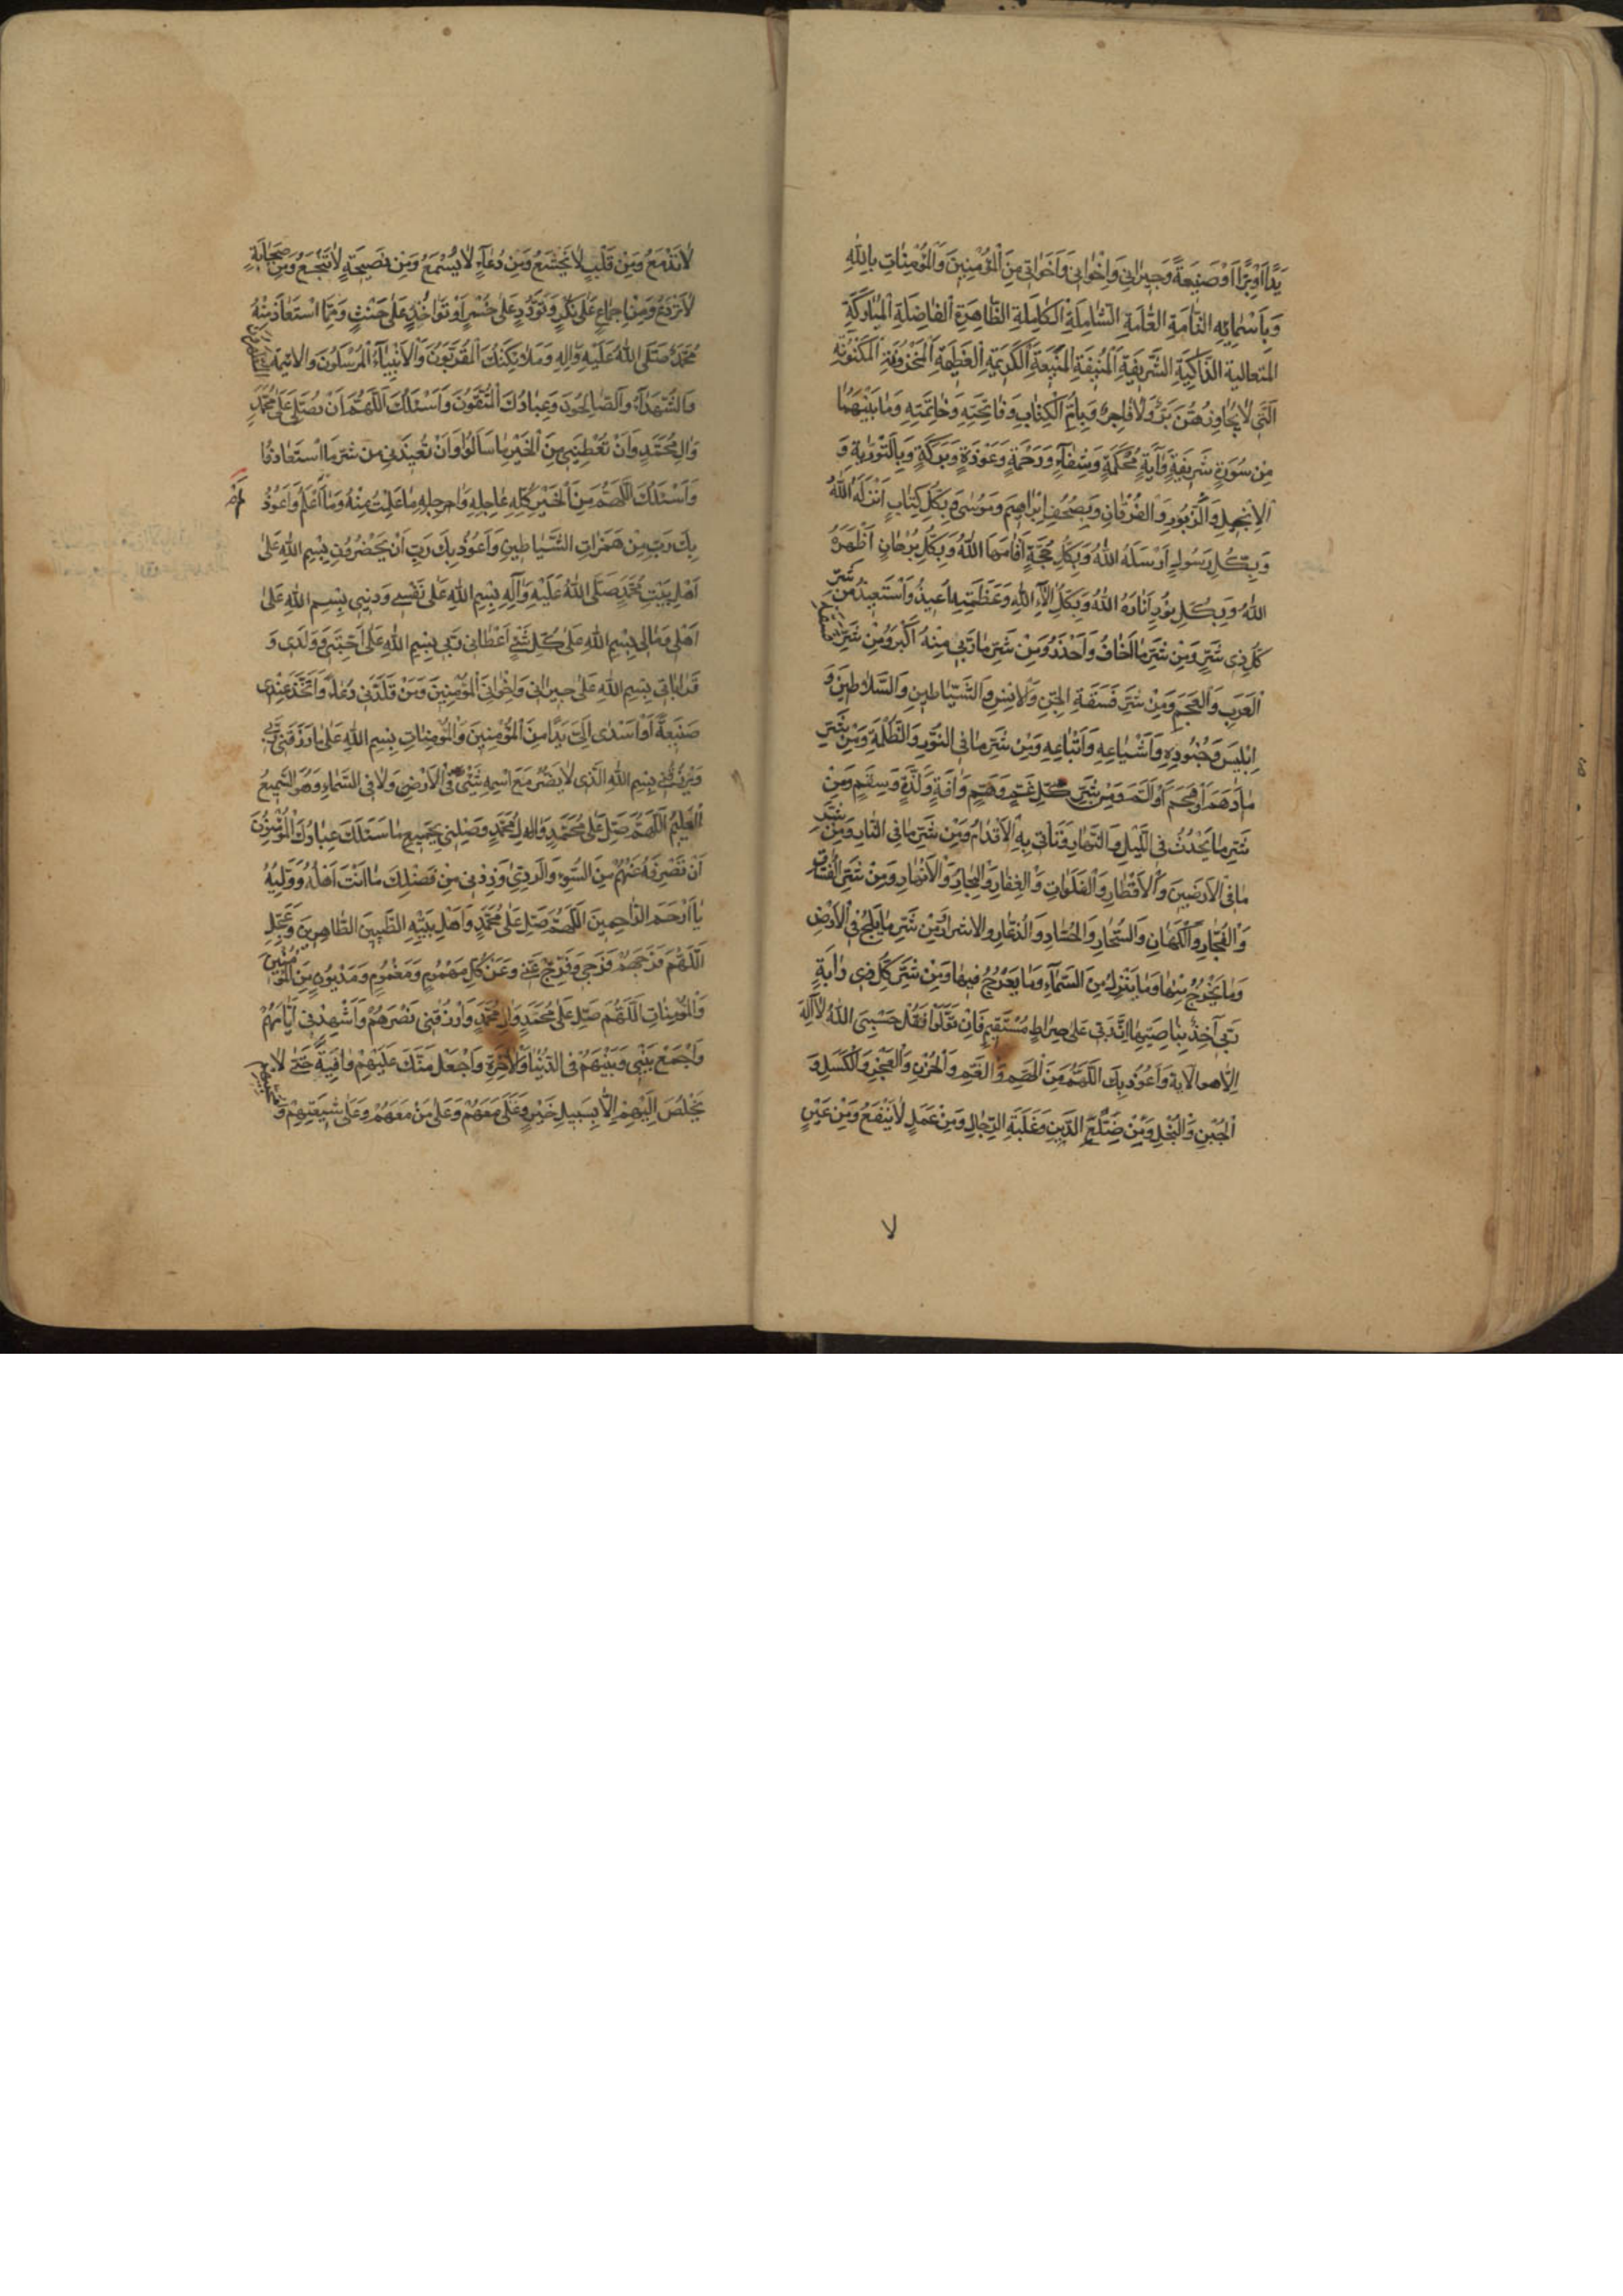 يَدًا اَوْ بِرًّا اَوْ صَنيعَةً وَجيرانى وَاِخْوانى وَاَخَواتى مِنَ الْمُؤْمِنينَ وَالْمُؤْمِناتِ بِاللهِ
وَبِاَسْمائِهِ التّامَّةِ العامَّةِ الشّامِلَةِ الْكامِلَةِ الطّاهِرَةِ الْفاضِلَةِ الْمُبارَكَةِ
الْمُتَعالِيَةِ الزّاكِيَةِ الشَّريفَةِ الْمُنيفَةِ الْمَنيعَةِ الْكَريمَةِ الْعَظيمَةِ الْمَخْزُونَةِ الْمَكْنُونَةِ
الَّتى لايُجاوِزُهُنَّ بَرٌّ وَلافاجِرٌ وَبِاُمِّ الْكِتابِ وَفاتِحَتِهِ وَخاتِمَتِهِ وَما بَيْنَهُما
مِنْ سُورَةٍ شَريفَةٍ وَآيَةٍ مُحْكَمَةٍ وَشِفاءٍ وَرَحْمَةٍ وَعَوْذَةٍ وَبَرَكَةٍ وَبِالتَّوْرايةِ وَ
الْاِنْجيلِ وَالزَّبُورِ وَالْفُرْقانِ وَبِصُحُفِ اِبْراهيمَ وَمُوسى وَبِكُلِّ كِتابٍ اَنْزَلَهُ اللهُ
وَبِكُلِّ رَسُولٍ اَرْسَلَهُ اللهُ وَبِكُلِّ حُجَّةٍ اَقامَهَا اللهُ وَبِكُلِّ بُرْهانٍ اَظْهَرَهُ
اللهُ وَبِكُلِّ نُورٍ اَنارَهُ اللهُ وَبِكُلِّ آلاءِ اللهِ وَعَظَمَتِهِ اُعيذُ وَاَسْتَعيذُ مِنْ شَرِّ
كُلِّ ذى شَرٍّ وَمِنْ شَرِّ ما اَخافُ وَاَحْذَرُ وَمِنْ شَرِّ ما رَبّى مِنْهُ اَكْبَرُ وَمِنْ شَرِّ فسقة
الْعَرَبِ وَالْعَجَمِ وَمِنْ شَرِّ فَسَقَةِ الْجِنِّ وَالْاِنْسِ وَالشَّياطينِ وَالسَّلاطينِ وَ
اِبْليسَ وَجُنُودِهِ وَاَشْياعِهِ وَاَتْباعِهِ وَمِنْ شَرِّ ما فِى النُّورِ وَالظُّلْمَةِ وَمِنْ شَرِّ
ما دَهَمَ اَوْ هَجَمَ اَوْ اَلَمَّ وَمِنْ شَرِّ كُلِّ غَمٍّ وَهَمٍّ وَآفَةٍ وَنَدَمٍ وَسَقَمٍ وَمِنْ
شَرِّ ما يَحْدُثُ فِى اللَّيْلِ وَالنَّهارِ وَتَأْتى بِهِ الْاَقْدارُ وَمِنْ شَرِّ ما فِى النّارِ وَمِنْ شَرِّ
ما فِى الْاَرَضينَ وَالْاَقْطارِ وَالْفَلَواتِ وَالْقِفارِ وَالْبِحارِ وَالْاَنْهارِ وَمِنْ شَرِّ الْفُسّاقِ
وَالْفُجّارِ وَالْكُهّانِ وَالسُّحّارِ وَالْحُسّادِ وَالذُّعّارِ وَالْاَشْرارِ وَمِنْ شَرِّ ما يَلِجُ فِى الْاَرْضِ
وَما يَخْرُجُ مِنْها وَما يَنْزِلُ مِنَ السَّماءِ وَما يَعْرُجُ فيها وَمِنْ شَرِّ كُلِّ ذى دابَّةٍ
رَبّى آخِذٌ بِناصِيَتِها اِنَّ رَبّى عَلى صِراطٍ مُسْتَقيمٍ فَاِنْ تَوَلَّوْا فَقُلْ حَسْبِىَ اللهُ لا اِلهَ
اِلّا هو الاية وَاَعُوذُ بِكَ اللّهُمَّ مِنَ الْهَمِّ وَالْغَمِّ وَالْحُزْنِ وَالْعَجْزِ وَالْكَسَلِ وَ
الْجُبْنِ وَالْبُخْلِ وَمِنْ ضَلَعِ الدَّيْنِ وَغَلَبَةِ الرِّجالِ وَمِنْ عَمَلٍ لايَنْفَعُ وَمِنْ عَيْنٍ
لا
لاتَدْمَعُ وَمِنْ قَلْبٍ لايَخْشَعُ وَمِنْ دُعاءٍ لايُسْمَعُ وَمِنْ نَصيحَةٍ لاتَنْجَعُ وَمِنْ صَحابَةٍ
لاتَرْدَعُ وَمِنْ اِجْماعٍ عَلى نُكْرٍ وَتَوَدُّدٍ عَلى خُسْرٍ اَوْ تَواخُذٍ عَلى خُبْثٍ وَمِمَّا اسْتَعاذَ مِنْهُ
مُحَمَّدٌ صَلَّى اللهُ عَلَيْهِ وَالِهِ وَمَلائِكَتُكَ الْمُقَرَّبُونَ وَالْاَنْبِياءُ الْمُرْسَلُونَ وَالْائِمَّةُ
وَالشُّهَداءُ وَالصّالِحُونَ وَعِبادُكَ الْمُتَّقُونَ وَاَسْئَلُكَ اللّهُمَّ اَنْ تُصَلِّىَ عَلى مُحَمَّدٍ
وَالِ مُحَمَّدٍ وَاَنْ تُعْطِيَنى مِنَ الْخَيْرِ ما سَاَلُوا وَاَنْ تُعيذَنى مِنْ شَرِّ ما اسْتَعاذُوا
وَاَسْئَلُكَ اللّهُمَّ مِنَ الْخَيْرِ كُلِّهِ عاجِلِهِ وَآجِلِهِ ما عَلِمْتُ مِنْهُ وَما لَمْ اَعْلَمْ وَاَعُوذُ
بِكَ رَبِّ مِنْ هَمَزاتِ الشَّياطينِ وَاَعُوذُ بِكَ رَبِّ اَنْ يَحْضُرُونِ بِسْمِ اللهِ عَلى
اَهْلِ بَيْتِ مُحَمَّدٍ صَلَّى اللهُ عَلَيْهِ وَآلِهِ بِسْمِ اللهِ عَلى نَفْسى وَدينى بِسْمِ اللهِ عَلى
اَهْلى وَمالى بِسْمِ اللهِ عَلى كُلِّ شَىْءٍ اَعْطانى رَبّى بِسْمِ اللهِ عَلى اَحِبَّتى وَوَلَدى وَ
قَراباتى بِسْمِ اللهِ عَلى جيرانى وَاِخْوانِىَ الْمُؤْمِنينَ وَمَنْ قَلَّدَنى دُعاءً وَاتَّخَذَ عِنْدى
صَنيعَةً اَوْ اَسْدى اِلَىَّ يَدًا مِنَ الْمُؤْمِنينَ وَالْمُؤْمِناتِ بِسْمِ اللهِ عَلى ما رَزَقَنى رَبّى
وَيَرْزُقُنى بِسْمِ اللهِ الَّذى لايَضُرُّ مَعَ اسْمِهِ شَىْءٌ فِى الْاَرْضِ وَلا فِى السَّماءِ وَهُوَ السَّميعُ
الْعَليمُ اللّهُمَّ صَلِّ عَلى مُحَمَّدٍ وَالِ مُحَمَّدٍ وَصِلْنى بِجَميعِ ما سَئَلَكَ عِبادُكَ الْمُؤْمِنُونَ
اَنْ تَصْرِفَهُ عَنْهُمْ مِنَ السُّوءِ وَالرَّدى وَزِدْنى مِنْ فَضْلِكَ ما اَنْتَ اَهْلُهُ وَوَلِيُّهُ
يا اَرْحَمَ الرّاحِمينَ اللّهُمَّ صَلِّ عَلى مُحَمَّدٍ وَاَهْلِ بَيْتِهِ الطَّيِّبينَ الطّاهِرينَ وَعَجِّلِ
اللّهُمَّ فَرَجَهُمْ فَرَجى وَفَرِّجْ عَنّى وَعَنْ كُلِّ مَهْمُومٍ وَمَغْمُومٍ وَمَدْيُونٍ مِنَ الْمُؤْمِنينَ
وَالْمُؤْمِناتِ اللّهُمَّ صَلِّ عَلى مُحَمَّدٍ وَالِ مُحَمَّدٍ وَارْزُقْنى نَصْرَهُمْ وَاَشْهِدْنى اَيّامَهُمْ
وَاجْمَعْ بَيْنى وَبَيْنَهُمْ فِى الدُّنْيا وَالْاخِرَةِ وَاجْعَلْ مِنْكَ عَلَيْهِمْ واقِيَةً حَتّى لا
يَخْلُصَ اِلَيْهِمْ اِلّا بِسَبيلِ خَيْرٍ وَعَلَىَّ مَعَهُمْ وَعَلى مَنْ مَعَهُمْ وَعَلى شيعَتِهِمْ وَ